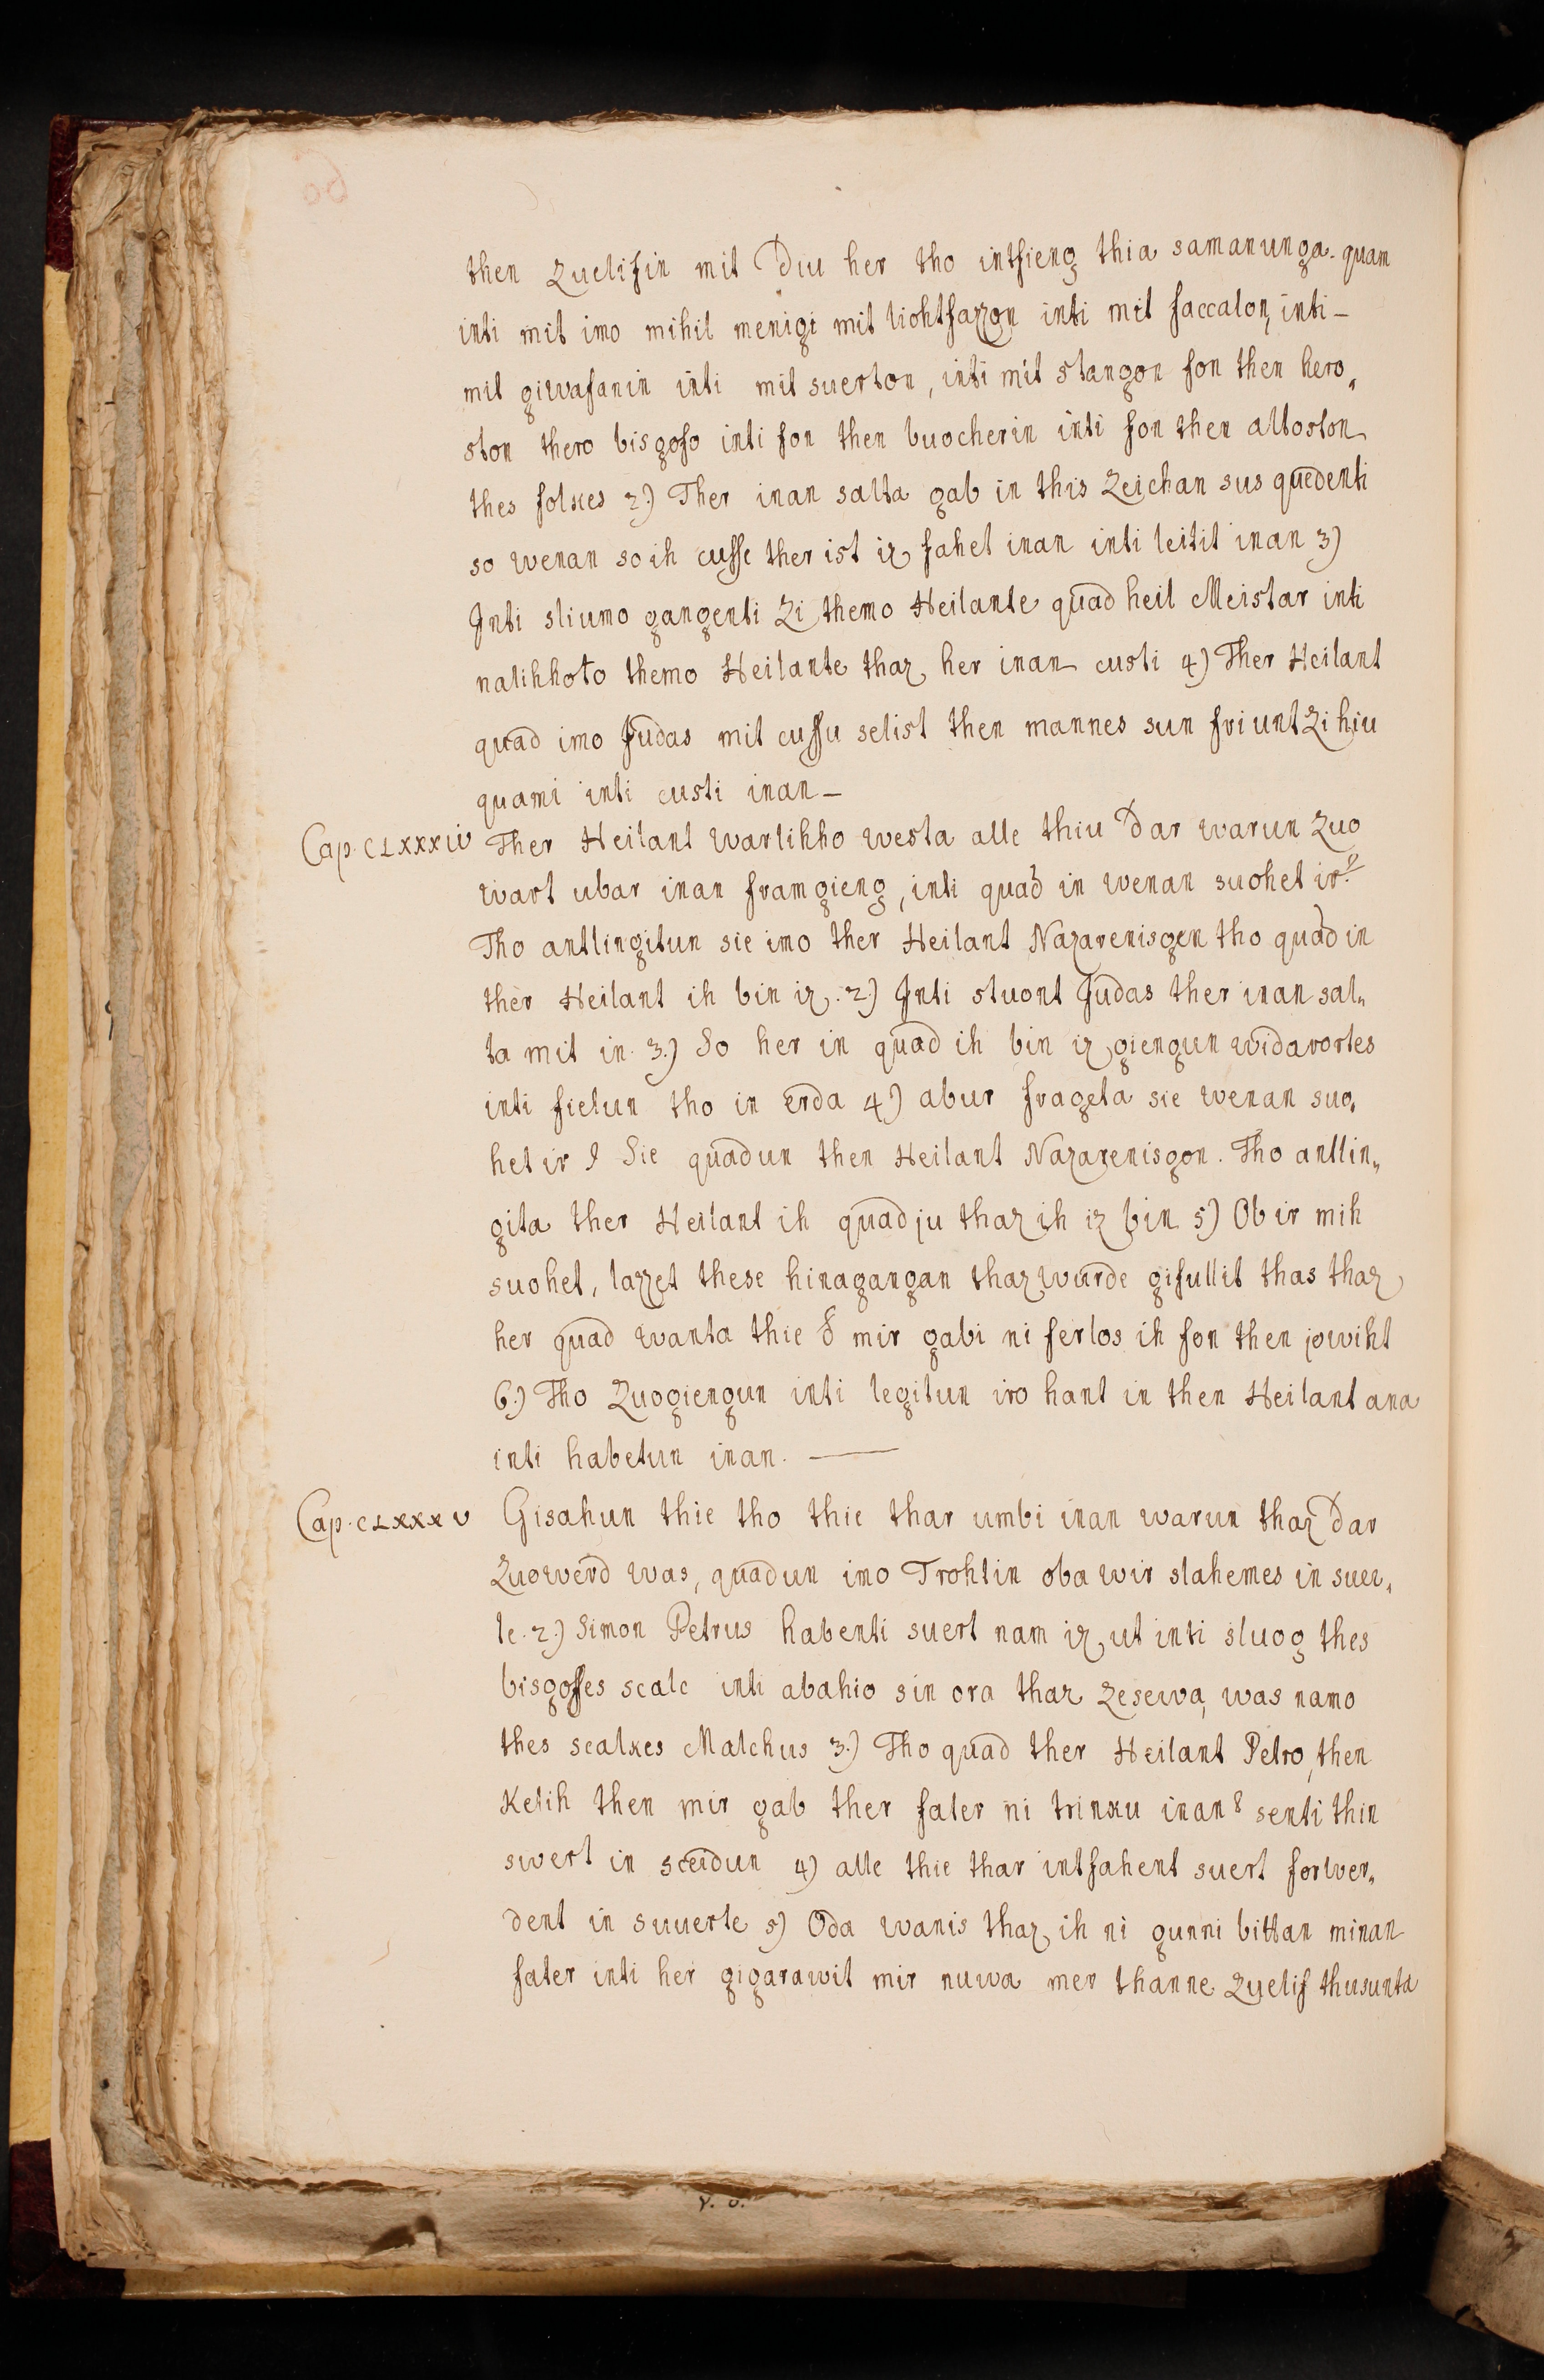 then zuelifin mit Diu her tho intfieng thia samanunga. quam
inti mit imo mihil menigi mit liohtfazzon inti mit faccalon, inti –
mit giwafanin inti mit suerton, inti mit stangon fon then hero„
ston thero bisgofo inti fon then buocherin inti fon then altoston
thes folkes 2.) Ther inan salta gab in this Zeichan sus quedenti
so wenan so ih cusse ther ist iz fahet inan inti leitit inan 3)
Inti sliumo gangenti Zi themo Heilante quad heil Meistar inti
nalihhoto themo Heilante thaz her inan custi 4) Ther Heilant
quad imo Judas mit cussu selist then mannes sun friunt Zi hiu
quami inti custi inan –
Cap. CLXXXIV Ther Heilant warlihho westa alle thiu Dar warun Zuo
wart ubar inan framgieng, inti quad in wenan suohet ir?
Tho antlingitun sie imo ther Heilant Nazarenisgen tho quad in
ther Heilant ih bin iz. 2) Inti stuont Judas ther inan sal„
ta mit in. 3.) So her in quad ih bin iz giengun widarortes
inti fielun tho in Erda 4) abur frageta sie wenan suo„
het ir? Sie quadun then Heilant Nazarenisgon. Tho antlin„
gita ther Heilant ih quad ju thaz ih iz bin 5) Ob ir mih
suohet, lazzet these hinagangan thaz wurde gifullit thas thaz
her quad wanta thie d mir gabi ni ferlos ih fon then jowiht
6.) Tho Zuogiengun inti legitun iro hant in then Heilant ana
inti habetun inan. —
Cap. CLXXXV Gisahun thie tho thie thar umbi inan warun thaz Dar
Zuowerd was, quadun imo Trohtin oba wir slahemes in suer„
te. 2.) Simon Petrus habenti suert nam iz ut inti sluog thes
bisgoffes scalc inti abahio sin ora thaz zesewa, was namo
thes scalkes Malchus 3.) Tho quad ther Heilant Petro, then
Kelih then mir gab ther fater ni trinku inan? senti thin
swert in sceidun 4) alle thie thar intfahent suert forwer„
dent in suuerte 5) Oda wanis thaz ih ni gunni bittan minan
fater inti her gigarawit mir nuwa mer thanne Zuelif thusunta